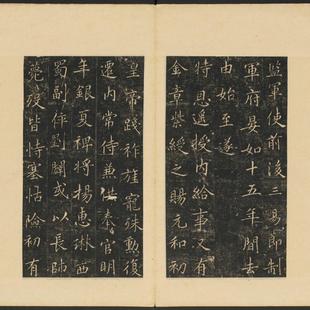 監軍使前後三易即制
軍府晏如十五年間去
由始至遂
特恩遥授内給事又有
金章紫綬之賜元和初
皇帝踐祚旌寵殊勲復
遷内常侍兼供奉官明
年銀夏裨將楊惠琳西
蜀副倅劉闢或以長帥
薨歿皆恃塞怙險初有